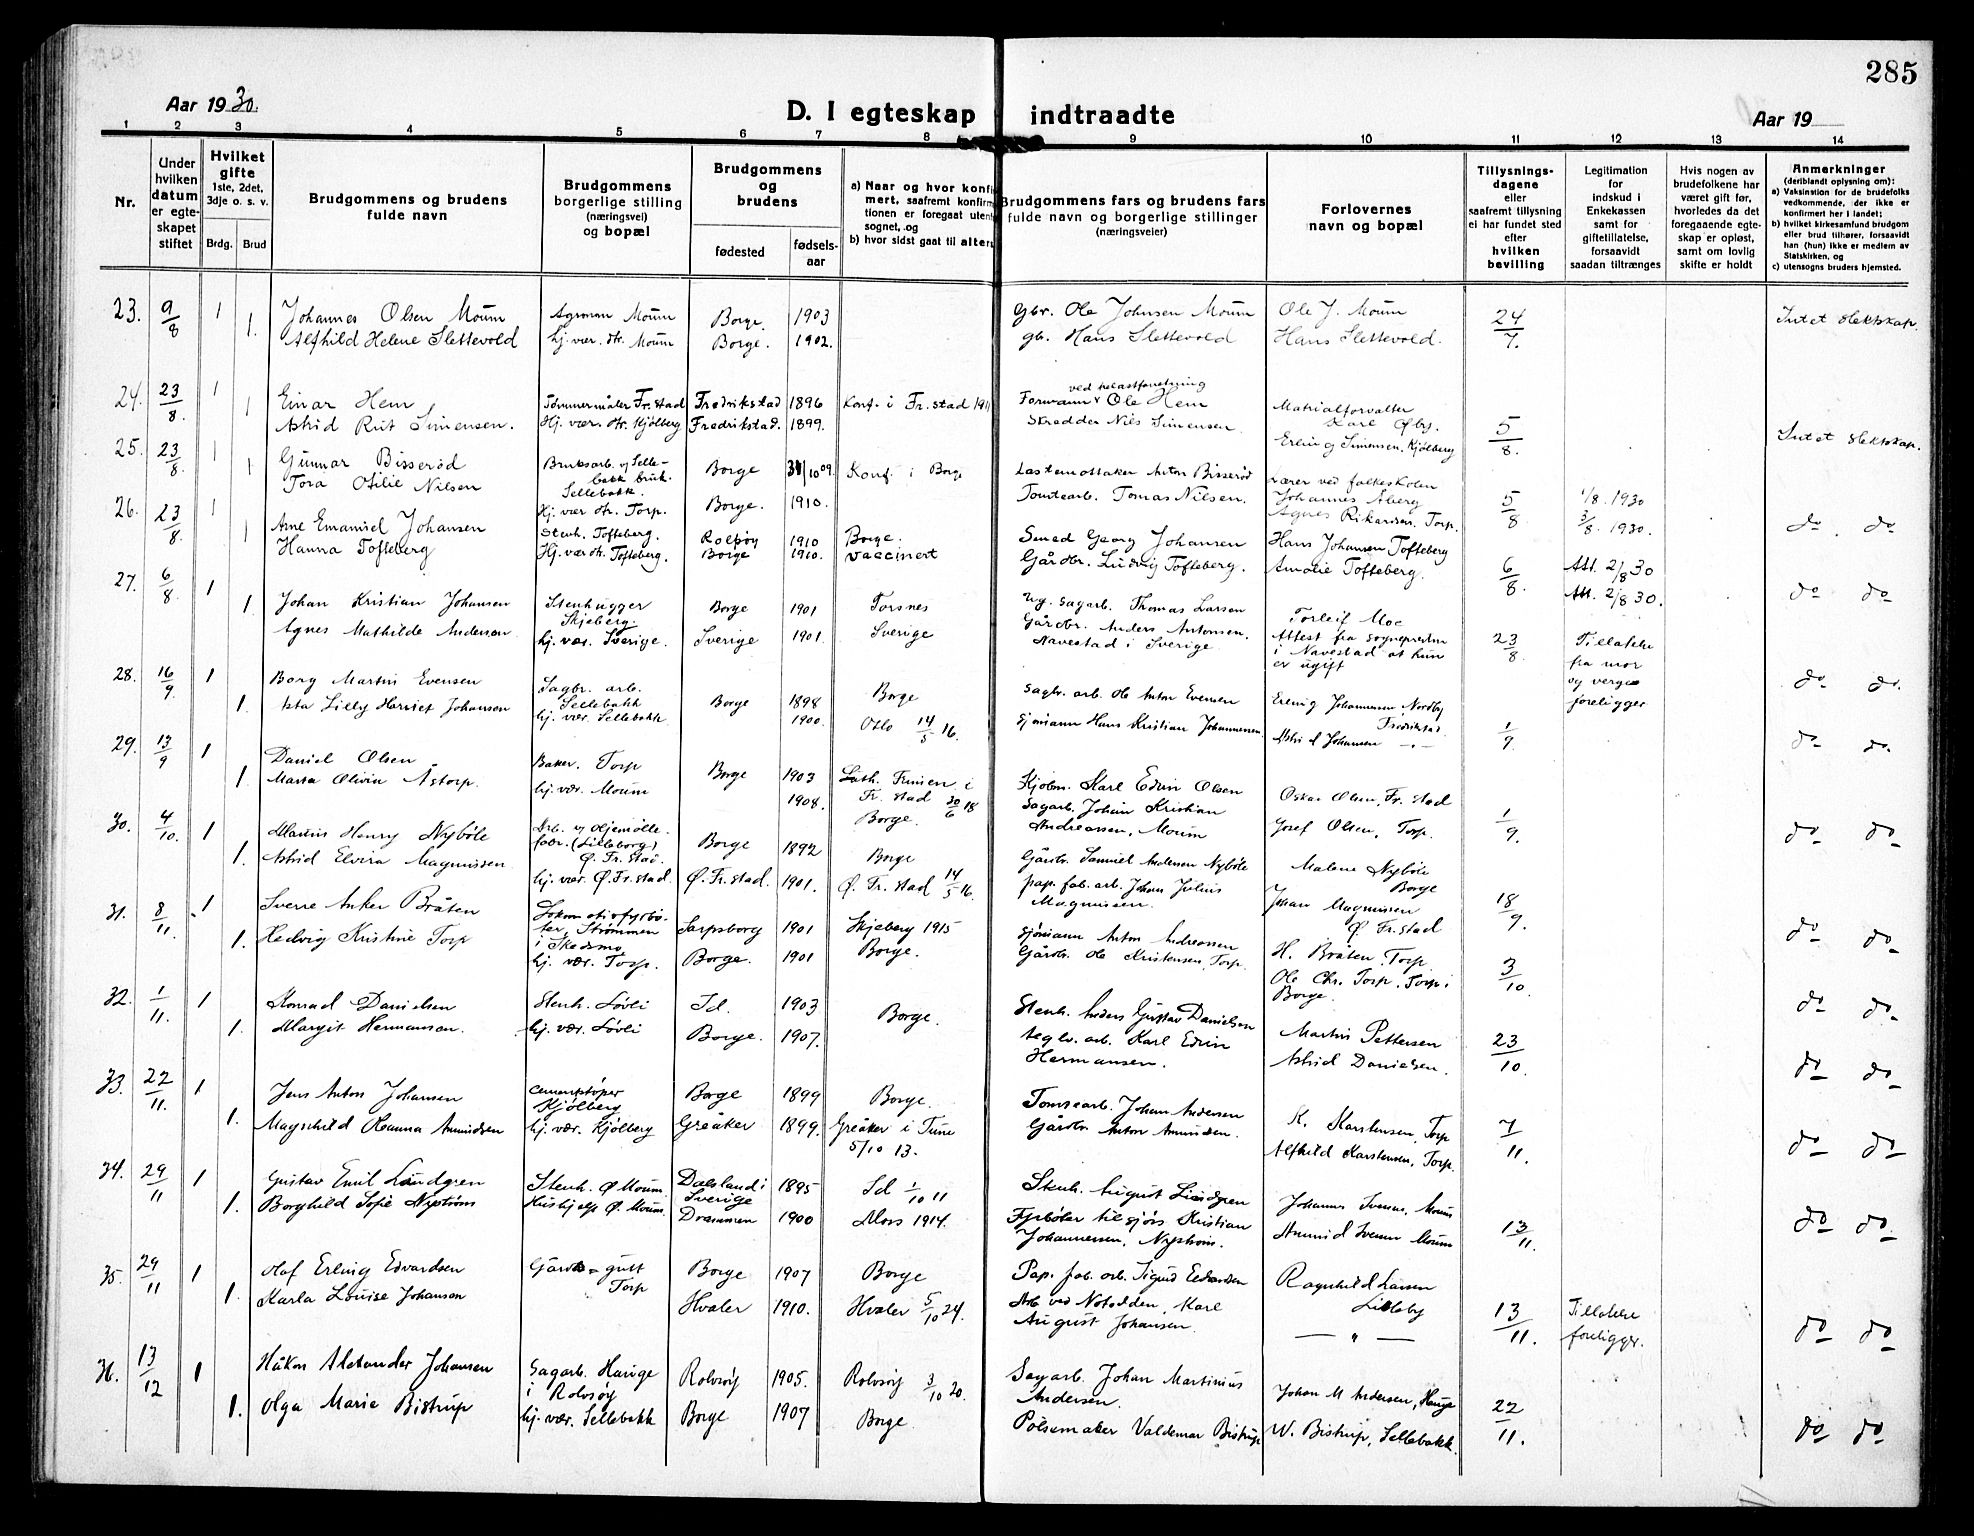 285
Aar 1930.
D. I egteskap indtraadte
Aar 19
1 2 3 4 5 6 7 8 9 10 11 12 13 14
Nr.
Under hvilken datum er egte-skapet stiftet
Hvilket gifte
1ste, 2det, 3dje o. s. v.
Brdg. Brud
Brudgommens og brudens fulde navn
Brudgommens borgerlige stilling (næringsvei) og bopæl
Brudgommens og brudens
fødested fødsels-aar
a) Naar og hvor konfi
mert, saafremt konfirm
tionen er foregaat uten
sognet, og
b) hvor sidst gaat til alter
Brudgommens fars og brudens fars
fulde navn og borgerlige stillinger
(næringsveier)
Forlovernes
navn og bopæl
Tillysnings-
dagene
eller
saafremt tillysning
ei har fundet sted
efter
hvilken
bevilling
Legitimation
for
indskud i
Enkekassen
samt for
giftetillatelse,
forsaavidt
saadan tiltrænges
Hvis nogen av
brudefolkene har
været gift før,
hvorledes da det
foregaaende egte-
skap er opløst,
samt om lovlig
skifte er holdt
Anmerkninger
(deriblandt oplysning om):
a) Vaksination for de brudefolks
vedkommende, der ikke er
konfirmert her i landet;
b) hvilket kirkesamfund brudgom
eller brud tilhører, forsaavidt
han (hun) ikke er medlem av
Statskirken, og
c) utensogns bruders hjemsted.
23. 9/8 1 Johannes Olsen Moum Agronom Moum Borge. 1903 Gbr. Ole Johnsen Moum Ole J. Moum 24/7. Intet slektskap.
1. Alfhild Helene Slettevold hj. vær. str. Moum Borge. 1902. gb. Hans Slettevold Hans Slettevold.
24. 23/8. 1 Einar Hem Tømmermåler Fr.stad Fredrikstad 1896 Konf. i Fr.stad 1911 Formann Ole Hem Matrialforvalter Karl Øby. 5/8. Intet slektskap.
1 Astrid Rut Simensen. Hj. vær. str. Kjölberg Fredrikstad. 1899. Skredder Nils Simensen. Erling Simensen, Kjölberg
25. 23/8. 1 Gunnar Bisseröd Bruksarb. v/ Selle-bakk bruk. Sellebakk. Borge 31/10 09. Konf. i Borge Lastemottaker Anton Bisseröd Lærer ved folkeskolen Johannes Åberg 5/8 1/8. 1930 do. do
1 Tora Otilie Nilsen Hj. vær str. Torp. Borge. 1910. Tomtearb. Tomas Nilsen. Agnes Rikardsen, Torp. 3/8. 1930.
26. 23/8. 1 Arne Emanuel Johansen Stenh. Tofteberg. Rolvsøy 1910 Borge. Smed Georg Johansen Hans Johansen Tofteberg 6/8. Att. 2/8 30 do do
1 Hanna Tofteberg Hj. vær str. Tofteberg. Borge 1910. vaccinert Gårdbr. Ludvig Tofteberg. Amalie Tofteberg. Att. 2/8 30.
27. 6/8 1 Johan Kristian Johansen Stenhugger Skjeberg. Borge 1901 Torsnes Ug. sagarb. Thomas Larsen Torleif Moe 23/8. Tillatelse fra mor og verge foreligger do do.
1. Agnes Mathilde Anderson hj. vær. Sverige. Sverige 1901. Sverige Gårdbr. Anders Antonsen, Navestad i Sverige. Attest fra sognepresten i Navestad at hun er ugift
28. 16/9. 1 Borg Martin Evensen Sagbr. arb. Sellebakk Borge 1898 Borge Sagbr. arb. Ole Anton Evensen Erling Johannessen, Nordby Fredrikstad 1/9. do do
1. Asta Lilly Harriet Johansen hj. vær. Sellebakk 1900. Oslo 14/5 16. Sjømann Hans Kristian Johannessen Astrid Johansen
29. 13/9 1 Daniel Olsen Baker. Torp Borge 1903 Luth. Frimen. i Fr. stad 30/6 18 Kjøbm. Karl Edvin Olsen Oskar Olsen, Fr. stad 1/9. do do
1. Marta Olivia Åstorp. hj. vær. Moum 1908. Borge. Sagarb. Johan Kristian Andreassen, Moum Josef Olsen, Torp.
30. 4/10. 1 Marius Henry Nybøle Arb. v/ Oljemølle-fabr. (Lilleborg) Ø. Fr. stad. Borge 1892 Borge Gårdbr. Samuel Andersen Nybøle Malene Nybøle Borge 18/9. do do
1. Astrid Elvira Magnussen hj. vær. Ø. Fr. stad. Ø. Fr. stad. 1901. Ø. Fr. stad 14/5 16. pap. fab. arb. Johan Julius Magnussen. Johan Magnussen Ø. Fr. stad
31. 8/11. 1 Sverre Anker Bråten Lokomotivfyrbø-ter, Strømmen i Skedsmo Sarpsborg 1901 Skjeberg 1915 Sjømann Anton Andreassen H. Bråten, Torp 3/10. do do
1. Hedvig Kristine Torp hj. vær. Torp. Borge. 1901 Borge. Gårdbr. Ole Kristensen, Torp. Ole Chr. Torp. Torp i Borge.
32. 1/11. 1 Konrad Danielsen Stenh. Løvli Id. 1903 Borge. Stenh. Anders Gustav Danielsen Martin Pettersen 23/10. do do
1. Margit Hermanson. hj. vær. Løvli Borge. 1907. teglv. arb. Karl Edvin Hermansen. Astrid Danielsen.
33. 22/11. 1 Jens Anton Johansen cementstøper Kjølberg Borge 1899 Borge. Tomtearb. Johan Andersen K. Karstensen, Torp 7/11. do do
1. Magnhild Hanna Amundsen hj. vær. Kjølberg Greåker 1899. Greåker i Tune 5/10 13. Gårdbr. Anton Amundsen. Alfhild Karstensen, Torp.
34. 29/11 1 Gustav Emil Lundgren Stenh. Ø. Moum. Dalsland i Sverige 1895 Id 1/10 11 Stenh. August Lundgren Johannes Svensen, Moum 13/11. do do
1. Borghild Sofie Nystrøm Hushjelp Ø. Moum. Drammen 1900 Moss 1914. Fyrbøter tilsjøs Kristian Johannessen, Nystrøm. Amund Svensen Moum
35. 29/11 1 Olaf Erling Edvardsen Gårds-gutt Torp Borge 1907 Borge Pap. fab. arb. Sigurd Edvardsen Ragnhild Larsen Lilleby 13/11. Tillatelse foreligger. do do
1. Karla Louise Johanson Hvaler 1910. Hvaler 5/10 24. Arb ved Notodden, Karl August Johansen. — " —
36. 13/12 1 Håkon Alexander Johansen Sagarb. Hauge i Rolvsøy Rolvsøy 1905. Rolvsøy 3/10 20. Sagarb. Johan Martinius Andersen. Johan M. Andersen, Hauge 22/11. do do
1. Olga Marie Bistrup hj. vær. Sellebakk Borge 1907 Borge. Pølsemaker Valdemar Bistrup W. Bistrup, Sellebakk.